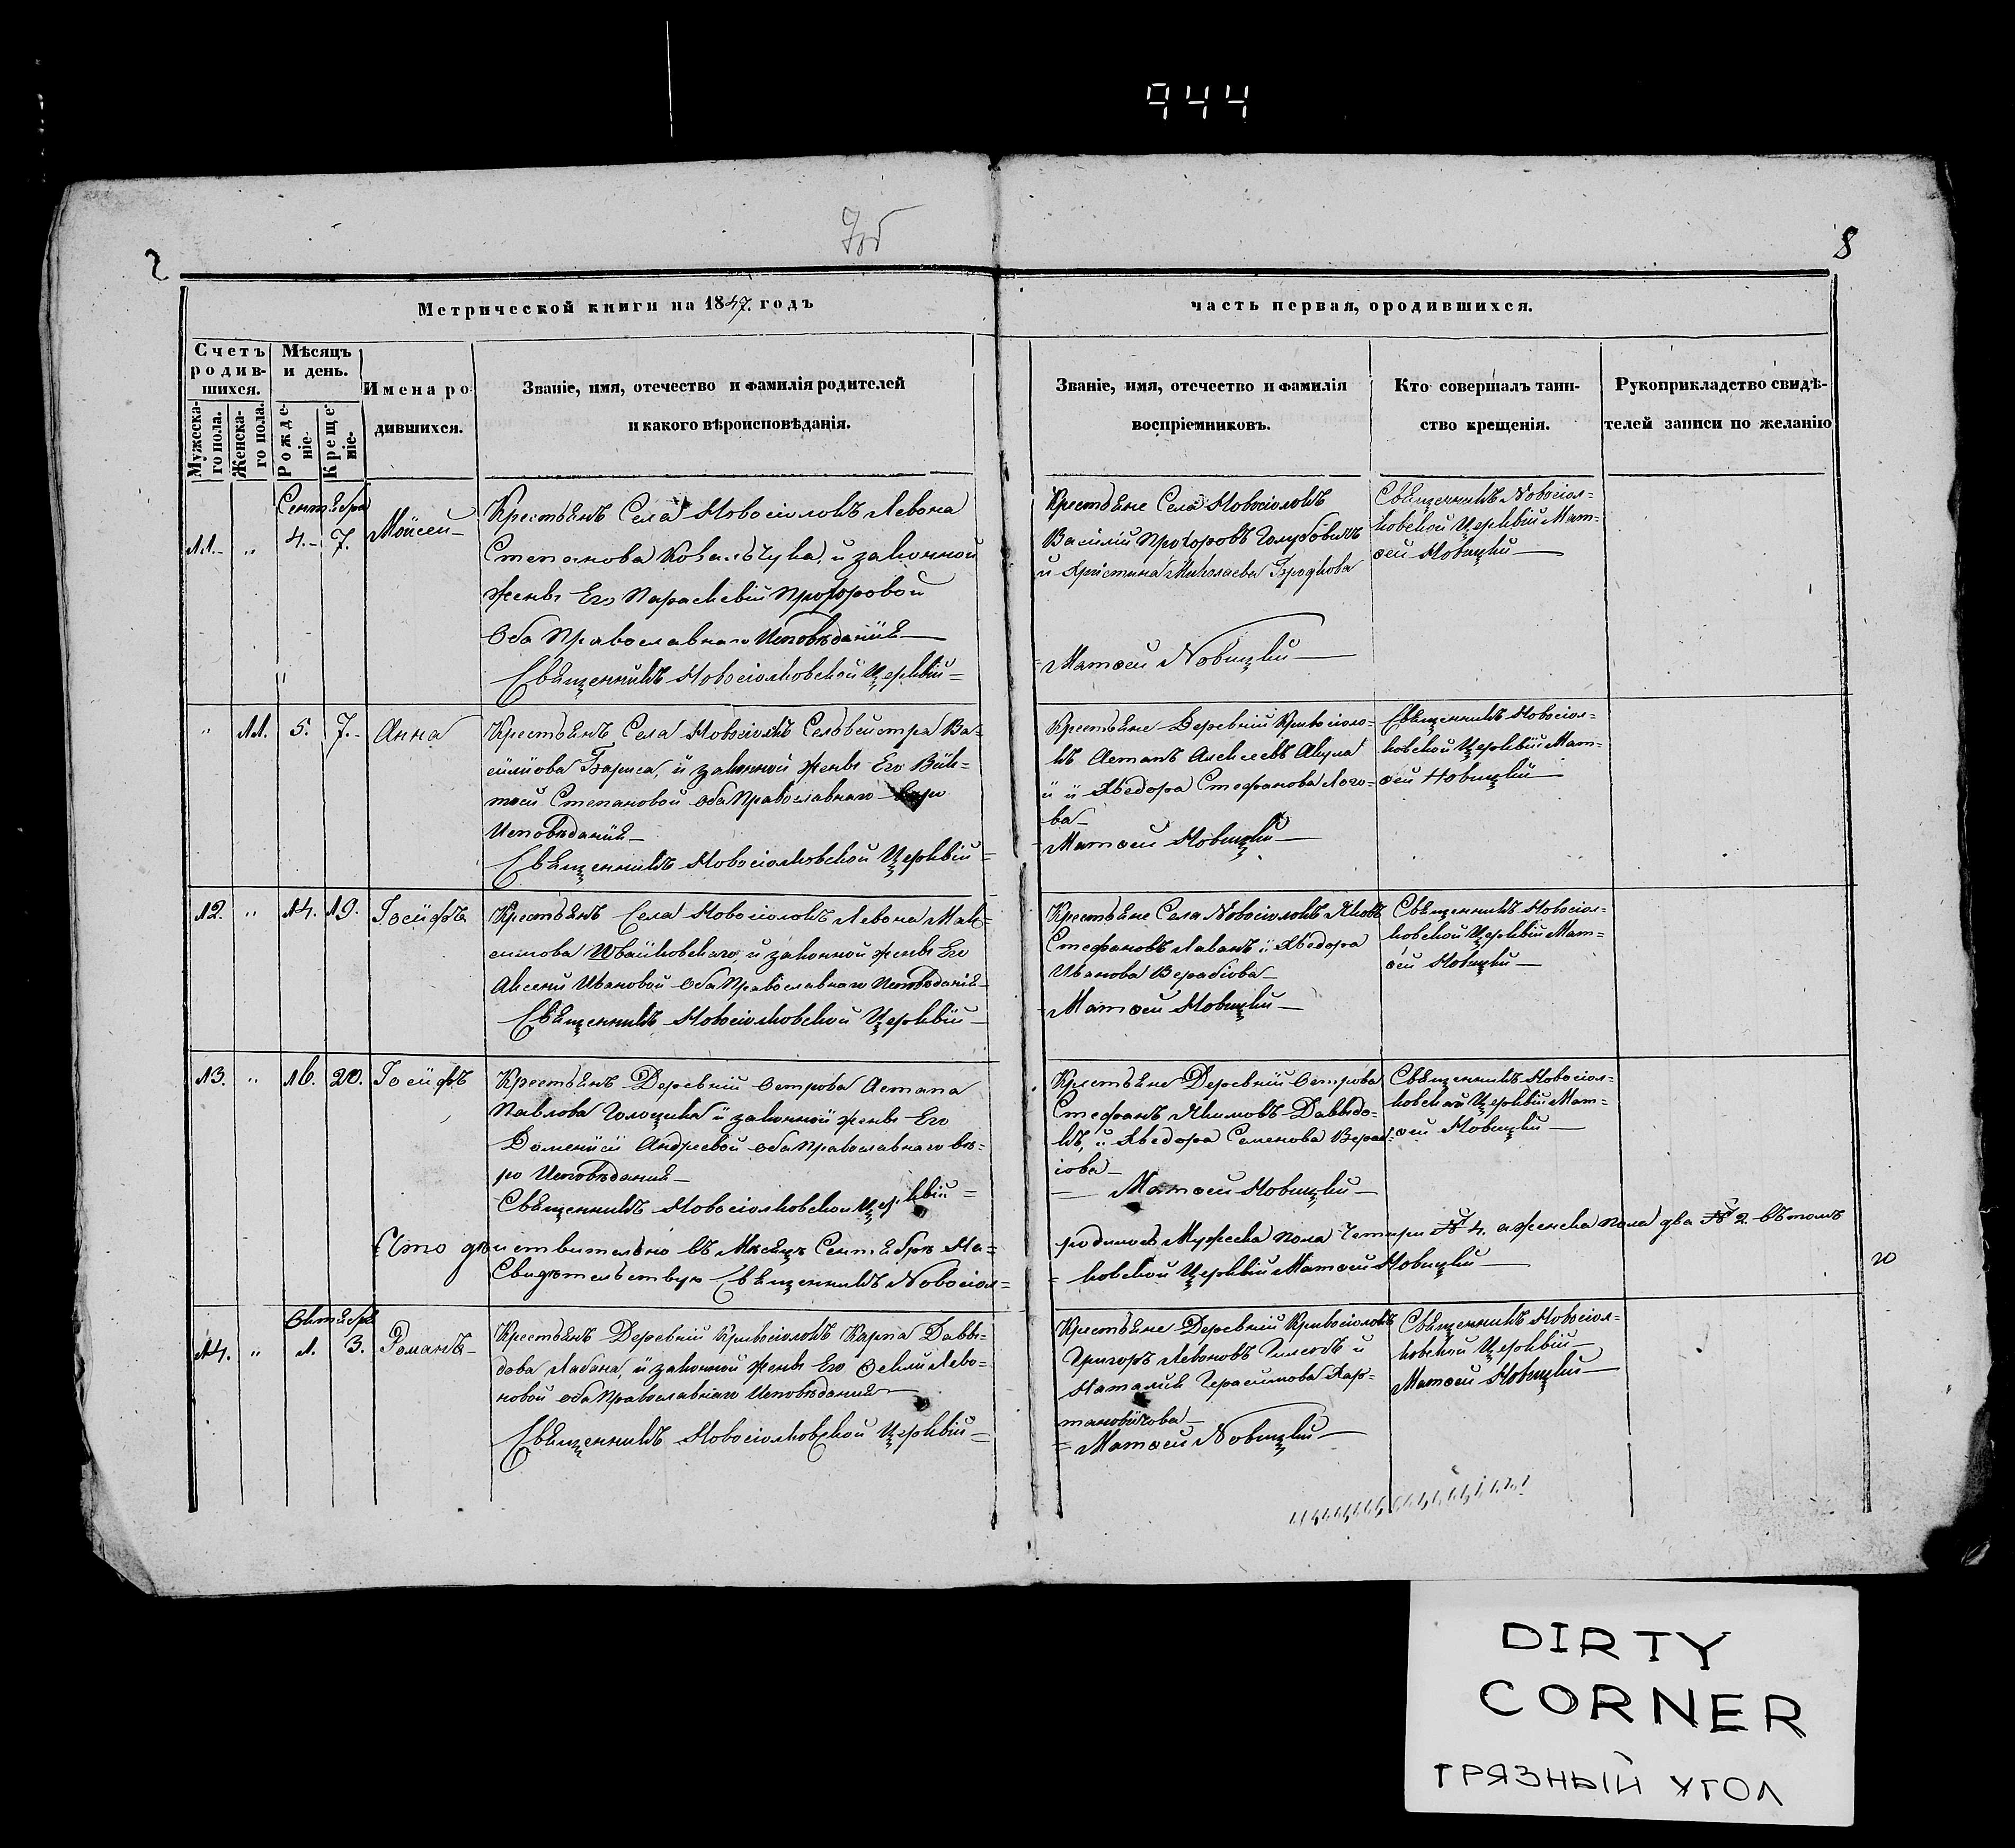 944
2
8
Метрической книги на 1847. годъ
часть первая, ородившихся.
Счетъ родив-шихся.
Мѣсяцъ и день.
Мужеска-го пола.
Женска-го пола.
Рожде-ніе.
Креще-ніе.
Имена ро-дившихся.
Званіе, имя, отечество и фамилія родителей
и какого вѣроисповѣданія.
Званіе, имя, отечество и фамилія
воспріемниковъ.
Кто совершалъ таин-
ство крещенія.
Рукоприкладство свидѣ-
телей записи по желанію
Сентября
11. " 4. 7. Моисей
Крестьянъ Села Новосіолокъ Левона
Степанова Ковальчука, и законной
жены Его Параскевіи Прохоровой
Оба Православнаго Исповѣданія
Священникъ Новосіолковской Церквіи
Крестьяне Села Новосіолокъ
Василій Прохоровъ
и Христина Николаева
Матѳей Новицкій
Священникъ Новосіол=
ковской Церквіи Мат=
ѳей Новицкій
" 11. 5. 7. Анна
Крестьянъ Села Новосіолкъ Селвестра Ва=
Бариса, и законной жены Его
Степановой оба Православнаго
Исповѣданія
Священникъ Новосіолковской Церквіи =
Крестьяне Деревніи Кривосіоло=
къ Астапъ Алексеевъ Акула
и Хведора Стефанова
ва
Матѳей Новицкій
Священникъ Новосіол=
ковской Церквіи Мат=
ѳей Новицкій
12. " 14. 19. Іосифъ
Крестьянъ Села Новосіолокъ Левона Мак=
симова Швайковскаго, и законной жены Его
Ивановой Оба Православнаго Исповѣданія
Священникъ Новосіолковской Церквіи
Крестьяне Села Новосіолокъ Яковъ
Стефановъ и Хведора
Иванова
Матѳей Новицкій
Священникъ Новосіол=
ковской Церквіи Мат=
ѳей Новицкій
13. " 16. 20. Іосифъ
Крестьянъ Деревніи Острова Астапа
Павлова и законной жены Его
Андреевой оба Православнаго вѣ=
ро Исповѣданія
Священникъ Новосіолковской Церквіи =
Крестьяне Деревніи Острова
Стефанъ Якимовъ Давыдо=
къ, и Хведора Семенова
іова
Матѳей Новицкій
Священникъ Новосіол=
ковской Церквіи Мат=
ѳей Новицкій
Что дѣиствительно въ Мѣсяцѣ Сентябрѣ
родилось Мужеска пола Четыри № 4. аженска пола два № 2. въ томъ
Свидѣтельствую Священникъ Новосіол=
ковской Церквіи Матѳей Новицкій
20
Октября
14. " 1. 3. Романъ
Крестьянъ Деревніи Кривосіолокъ Карпа Давы=
дова Лабана, и законной жены Его Лево=
новой оба Православнаго Исповѣданія
Священникъ Новосіолковской Церквіи =
Крестьяне Деревніи Кривосіолокъ
Григоръ Левоновъ и
Наталия Герасимова Хар=
= Матѳей Новицкій
Священникъ Новосіол=
ковской Церквіи
Матѳей Новицкій
DIRTY
CORNER
ГРЯЗНЫЙ УГОЛ